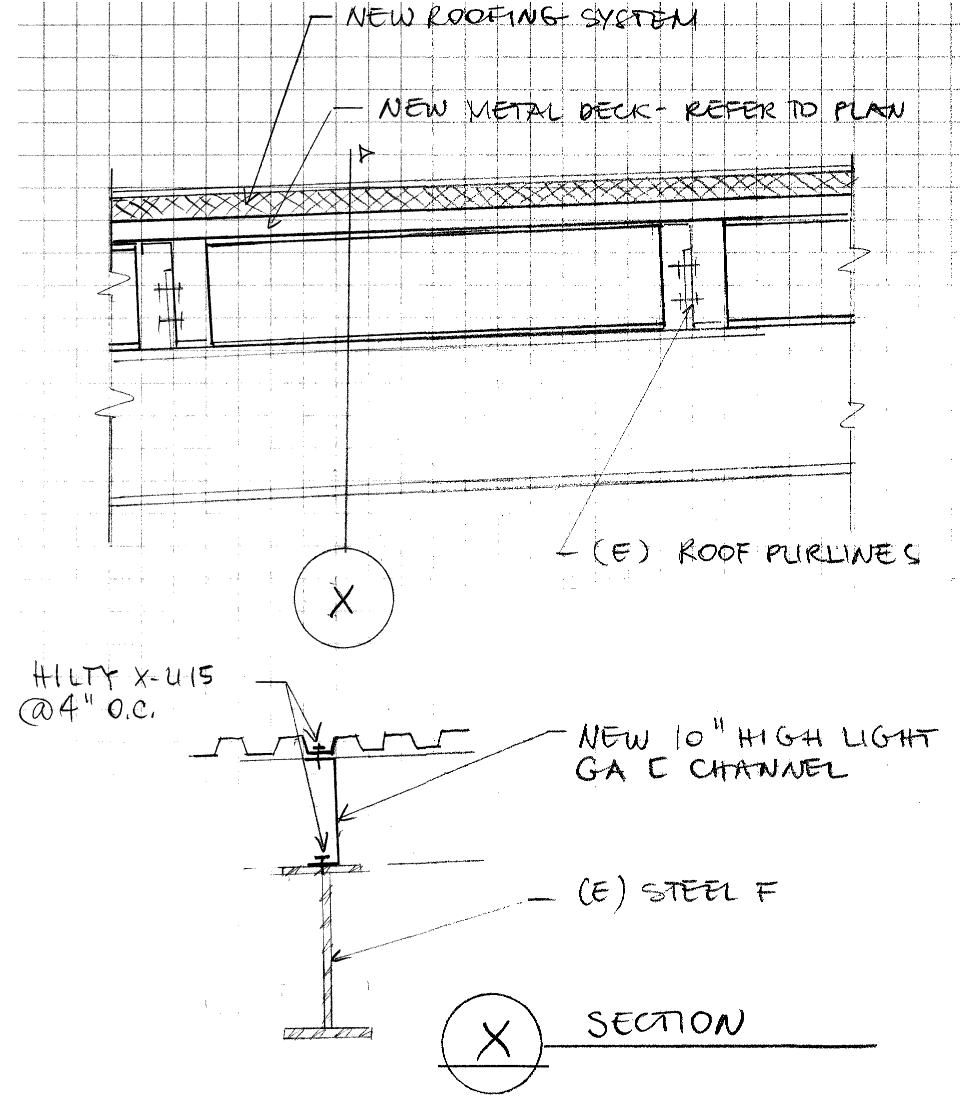 NEW ROOFING SYSTEM
NEW METAL DECK - REFER TO PLAN
(E) ROOF PURLINES
X
HILTY X-U15
@4" O.C.
NEW 10" HIGH LIGHT
GA C CHANNEL
(E) STEEL F
X
SECTION